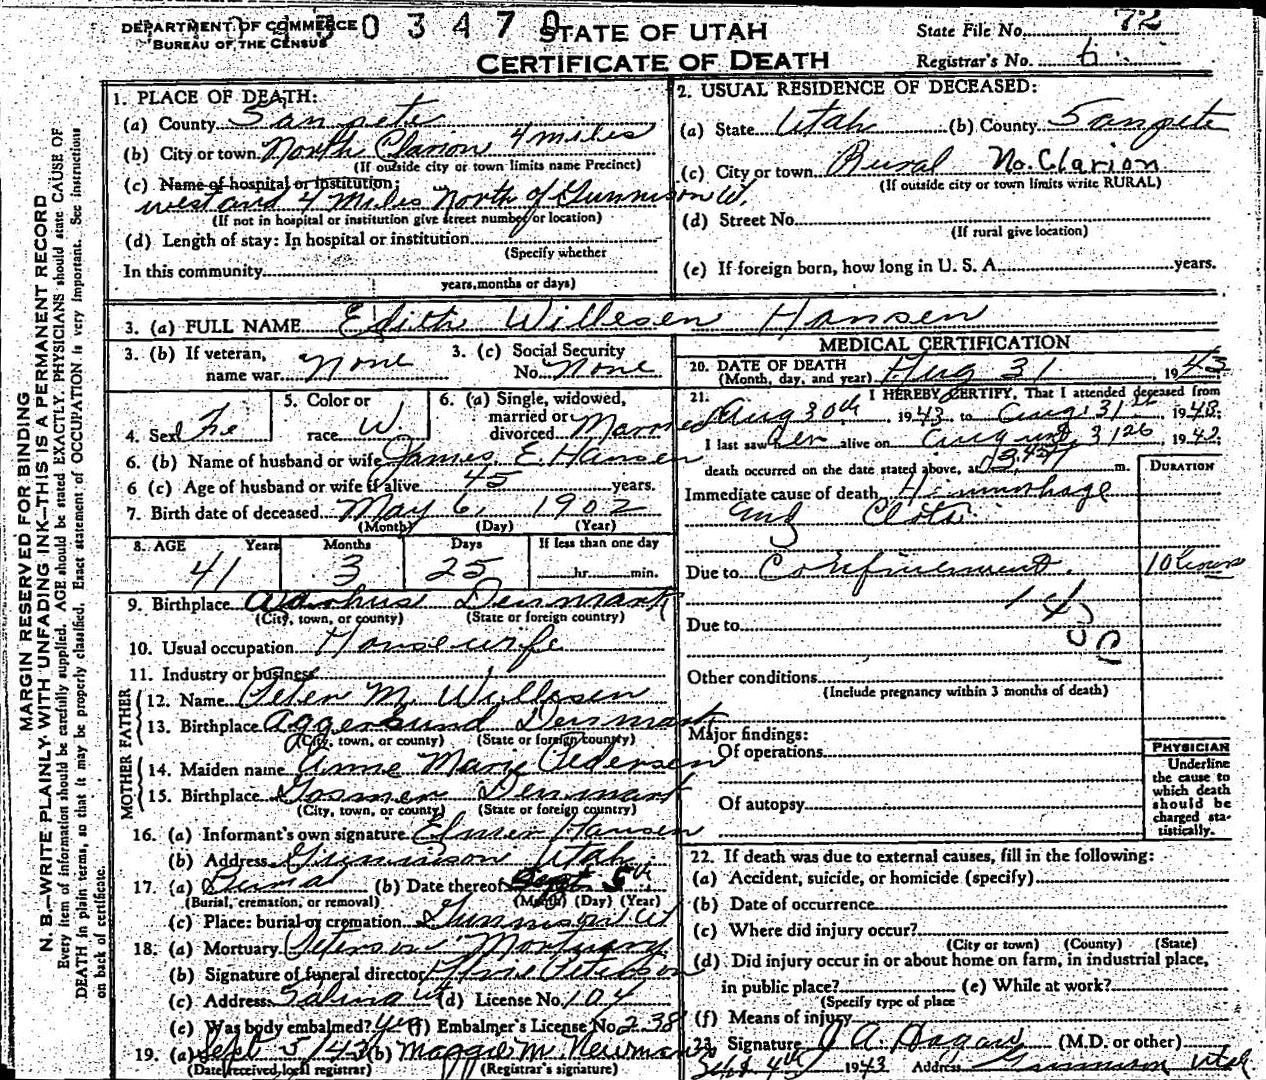 DEPARTMENT OF COMMERCE
BUREAU OF THE CENSUS
0 3 4 7 0
STATE OF UTAH
CERTIFICATE OF DEATH
State File No. 72
Registrar's No. 6
MARGIN RESERVED FOR BINDING
N. B.—WRITE PLAINLY, WITH UNFADING INK—THIS IS A PERMANENT RECORD
Every item of information should be carefully supplied. AGE should be stated EXACTLY. PHYSICIANS should state CAUSE OF
DEATH in plain terms, so that it may be properly classified. Exact statement of OCCUPATION is very important. See instructions
on back of certificate.
1. PLACE OF DEATH:
(a) County Sanpete
(b) City or town North Clarion 4 miles
(If outside city or town limits name Precinct)
(c) Name of hospital or institution:
west and 4 Miles North of Gunnison Ut.
(If not in hospital or institution give street number or location)
(d) Length of stay: In hospital or institution
(Specify whether
In this community
years, months or days)
2. USUAL RESIDENCE OF DECEASED:
(a) State Utah (b) County Sanpete
(c) City or town Rural No. Clarion
(If outside city or town limits write RURAL)
(d) Street No.
(If rural give location)
(e) If foreign born, how long in U. S. A. years.
3. (a) FULL NAME Edith Willesen Hansen
3. (b) If veteran, name war None
3. (c) Social Security No. None
4. Sex Fe
5. Color or race W.
6. (a) Single, widowed, married or divorced Married
6. (b) Name of husband or wife James E. Hansen
6 (c) Age of husband or wife if alive 45 years.
7. Birth date of deceased May 6, 1902
(Month) (Day) (Year)
8. AGE Years Months Days If less than one day
41 3 25 hr. min.
9. Birthplace Denmark
(City, town, or county) (State or foreign country)
10. Usual occupation Housewife
11. Industry or business
FATHER
12. Name Peter M. Willesen
13. Birthplace Aggersund Denmark
(City, town, or county) (State or foreign country)
MOTHER
14. Maiden name Anne Marie Pedersen
15. Birthplace Denmark
(City, town, or county) (State or foreign country)
16. (a) Informant's own signature Elmer Hansen
(b) Address Gunnison Utah
17. (a) Burial (b) Date thereof Sept 5th
(Burial, cremation, or removal) (Month) (Day) (Year)
(c) Place: burial or cremation Gunnison Ut
18. (a) Mortuary Peterson Mortuary
(b) Signature of funeral director Peterson
(c) Address Salina Ut (d) License No. 104
(e) Was body embalmed? Yes (f) Embalmer's License No. 238
19. (a) Sept 5/43 (b) Maggie M. Newman
(Date received local registrar) (Registrar's signature)
MEDICAL CERTIFICATION
20. DATE OF DEATH
(Month, day, and year) Aug 31, 1943
21. I HEREBY CERTIFY, That I attended deceased from
Aug 30th 1943, to Aug. 31st 1943;
I last saw her alive on August 31 1943;
death occurred on the date stated above, at m.
DURATION
Immediate cause of death Himmorhage
Clots
Due to Confinement. 10 hours
Due to
Other conditions
(Include pregnancy within 3 months of death)
Major findings:
Of operations
Of autopsy
PHYSICIAN
Underline
the cause to
which death
should be
charged sta-
tistically.
22. If death was due to external causes, fill in the following:
(a) Accident, suicide, or homicide (specify)
(b) Date of occurrence
(c) Where did injury occur?
(City or town) (County) (State)
(d) Did injury occur in or about home on farm, in industrial place,
in public place? (e) While at work?
(Specify type of place
(f) Means of injury
23. Signature J A. Hagan (M.D. or other)
Sept. 4th 1943 Address Gunnison Utah